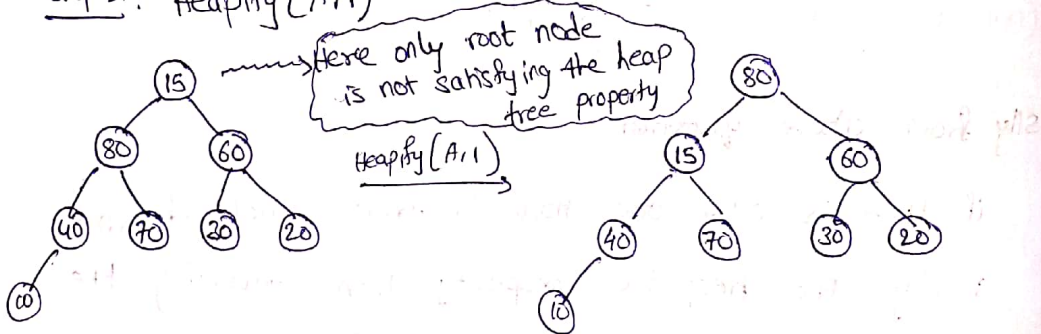 Heapify (A,1)
Here only root node
is not satisfying the heap
tree property
15
80
60
40
70
30
20
10
Heapify (A,1)
80
15
60
40
70
30
20
10